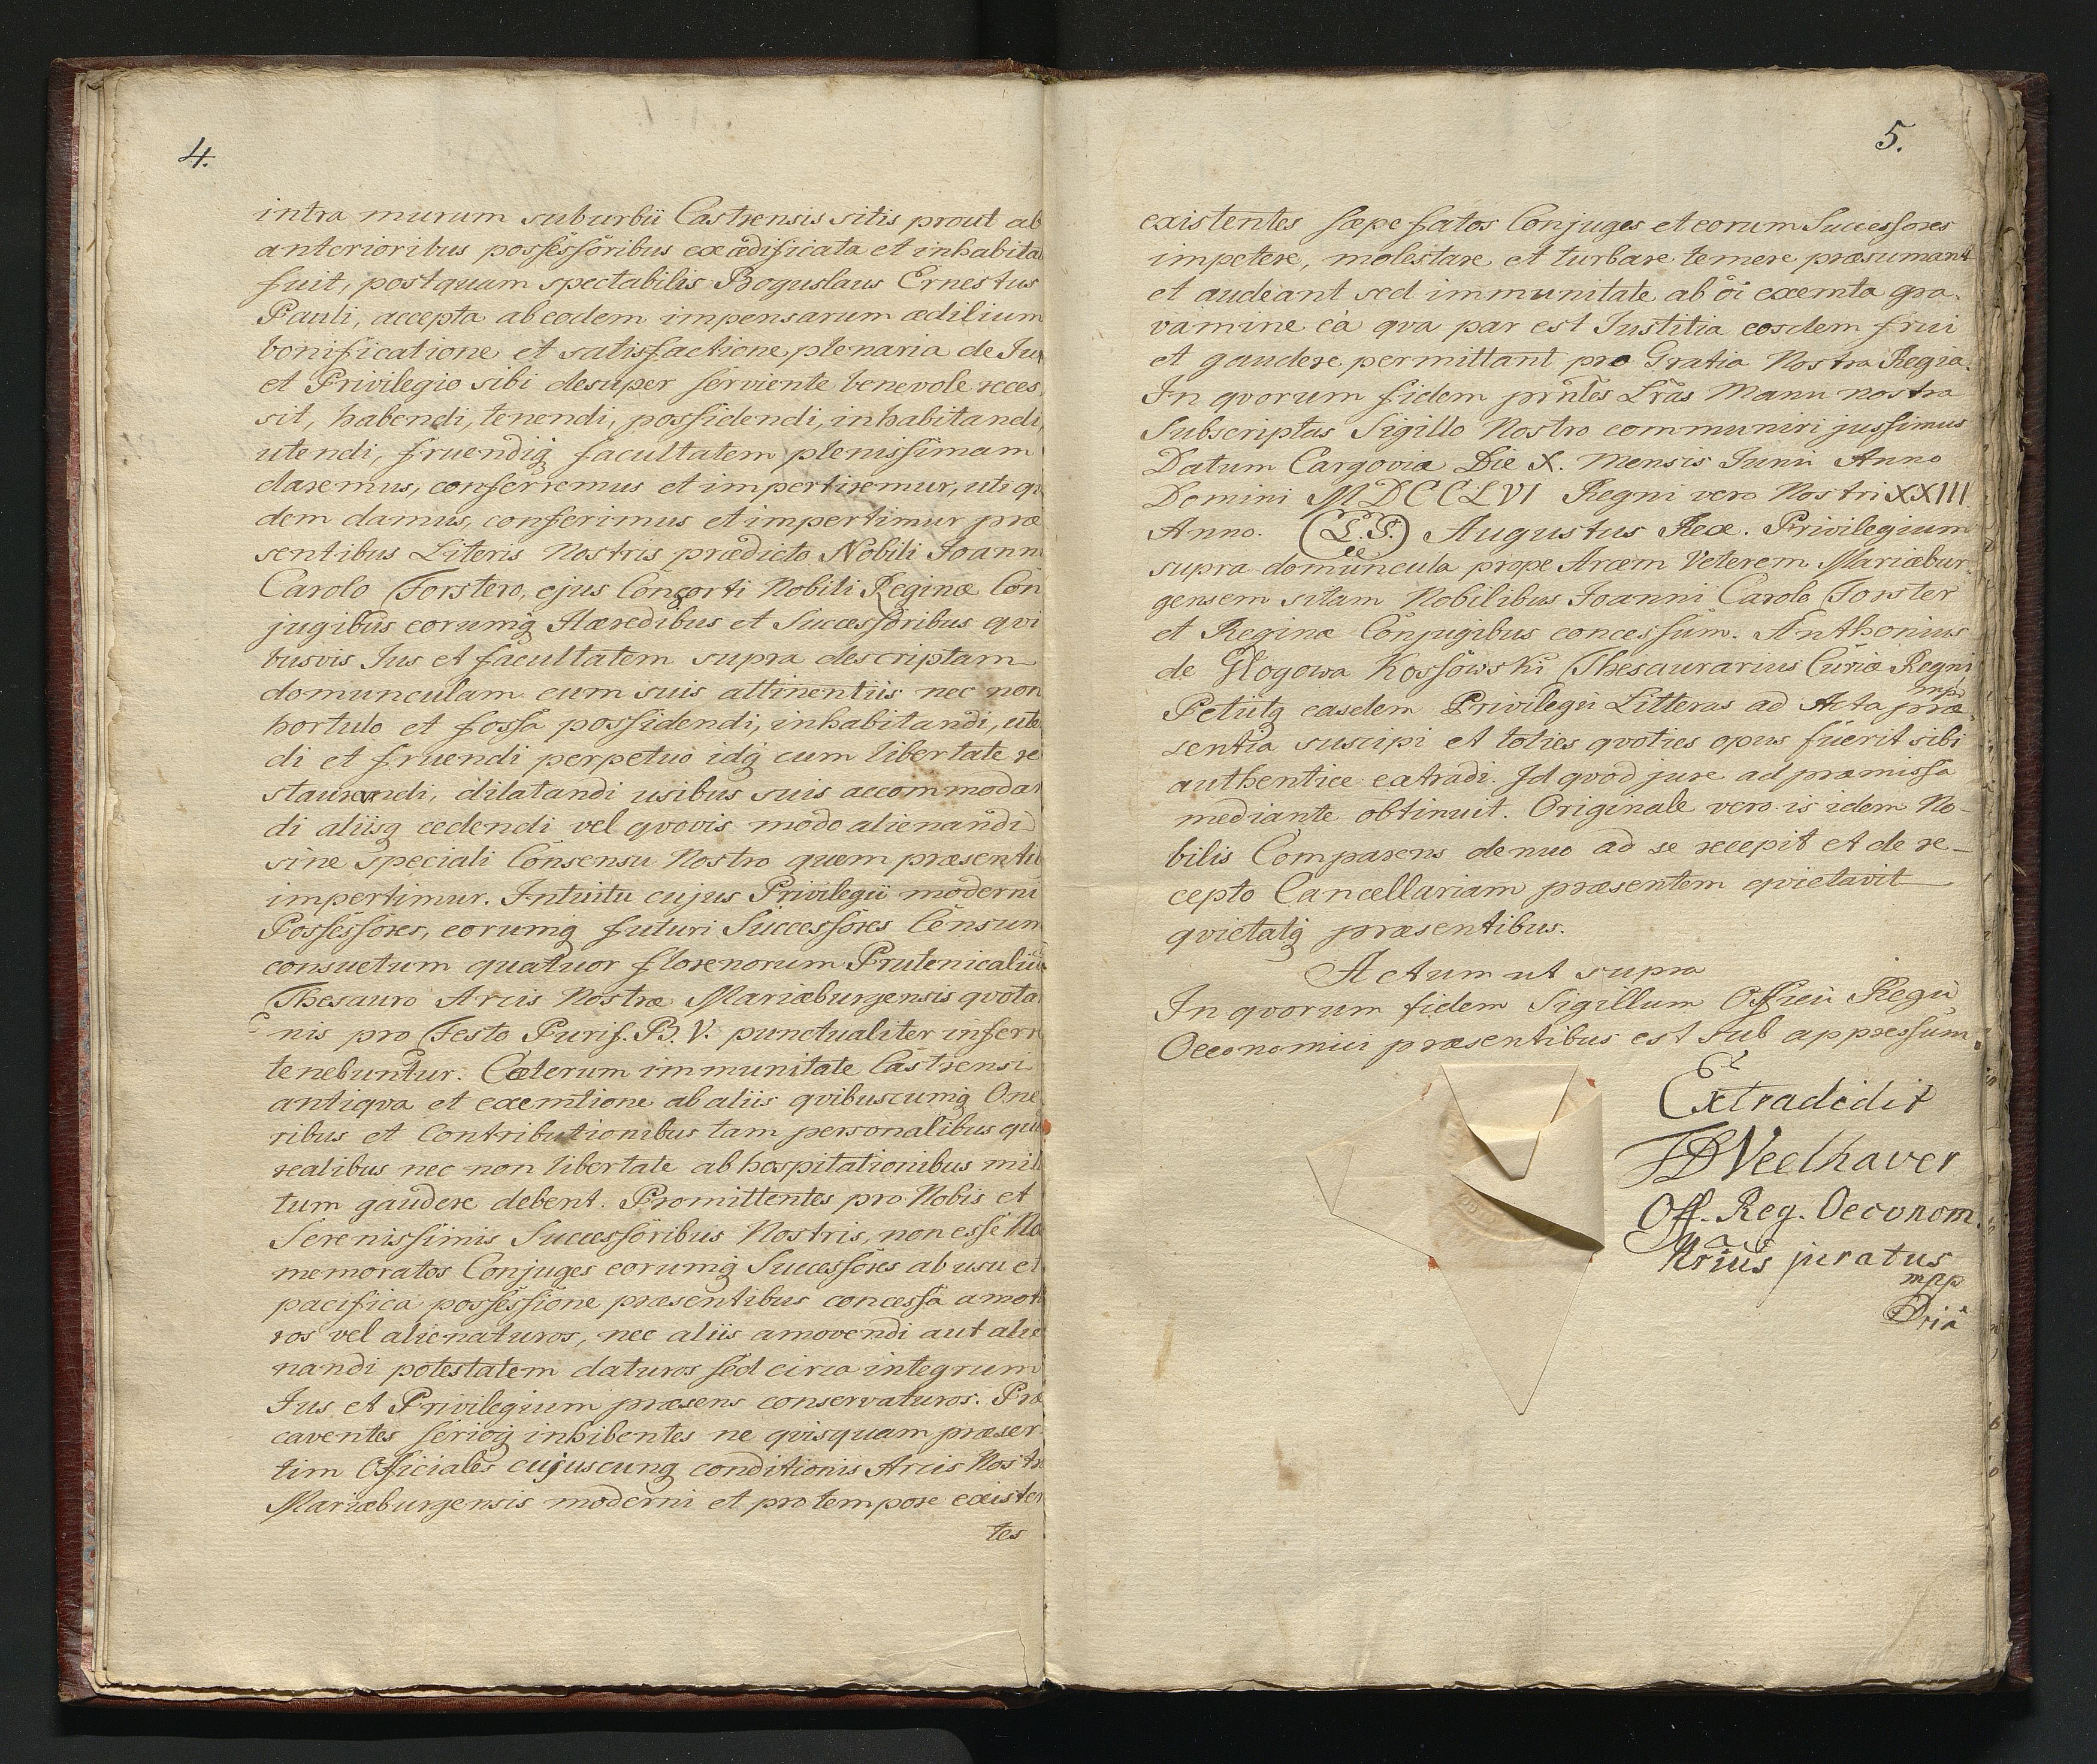 4.
intra murum suburbii Castrensis sitis prout ab
anterioribus possessoribus exædificata et inhabita
fuit, postquam spectabilis Boguslaus Ernestus
Pauli, accepta ab eodem impensarum ædilium
bonificatione et satisfactione plenaria de Iur
et Privilegio sibi desuper serviente benevole reces
sit, habendi, tenendi, possidendi, inhabitandi,
utendi, fruendiq facultatem plenissimam
daremus, conferremus et impertiremur, uti qui
dem damus, conferimus et impertimur præ
sentibus Literis Nostris prædicto Nobili Joann
Carolo Forstero, ejus Consorti Nobili Reginæ Con
jugibus eorumq Hæredibus et Successoribus qvi
busvis Jus et facultatem supra descriptam
domunculam cum suis attinentiis nec non
hortulo et fossa possidendi, inhabitandi, ute
di et fruendi perpetuo idq cum libertate re
staurandi, dilatandi usibus suis accommodan
di aliisq cedendi vel qvovis modo alienandi
sine speciali Consensu Nostro quem præsentib
impertimur. Intuitu cujus Privilegii moderni
Possessores, eorumq futuri Successores Censum
consuetum quatuor florenorum Prutenicaliū
Thesauro Arcis Nostræ Mariæburgensis qvota
nis pro Festo Purif. B. V. punctualiter inferre
tenebuntur. Cæterum immunitate Castrensi
antiqva et exemtione ab aliis qvibuscumq One
ribus et Contributionibus tam personalibus quā
realibus nec non libertate ab hospitationibus mili
tum gaudere debent. Promittentes pro Nobis et
Serenissimis Successoribus Nostris, non esse No
memoratos Conjuges eorumq Successores ab usu et
pacifica possessione præsentibus concessa amotu
ros vel alienaturos, nec aliis amovendi aut alie
nandi potestatem daturos sed circa integrum
Jus et Privilegium præsens conservaturos. Præ
caventes serioq inhibentes ne qvisquam præser
tim Officiales cujuscunq conditionis Arcis Nostr
Mariæburgensis moderni et pro tempore existen
tes
5.
existentes sæpe fatos Conjuges et eorum Successores
impetere, molestare et turbare temere præsumant
et audeant sed immunitate ab oi exemta gra-
vamine eà qva par est Justitia eosdem frui
et gaudere permittant pro Gratia Nostra Regia.
In qvorum fidem prntes Lras Manu nostra
Subscriptas Sigillo Nostro communiri jussimus
Datum Cargoviæ Die X. Mensis Junii Anno
Domini MDCCLVI Regni vero Nostri XXIII
Anno. (L.S.) Augustus Rex. Privilegium
supra domuncula prope Arcem Veterem Mariæbur-
gensem sitam Nobilibus Joanni Carolo Forster
et Reginæ Conjugibus concessum. Anthonius
de Głogowa Kossowski Thesaurarius Curiæ Regni
mp.
Petiitq easdem Privilegii Litteras ad Acta præ
sentia suscipi et toties qvoties opus fuerit sibi
authentice extradi. Id qvod jure ad præmissa
mediante obtinuit. Originale vero is idem No-
bilis Comparens denuo ad se recepit et de re-
cepto Cancellariam præsentem qvietavit
qvietatq præsentibus.
Actum ut supra
In qvorum fidem Sigillum Officii Regii
Oeconomici præsentibus est sub appressum.
Extradidit
Veelhaver
Off. Reg. Oeconom.
juratus
mpp